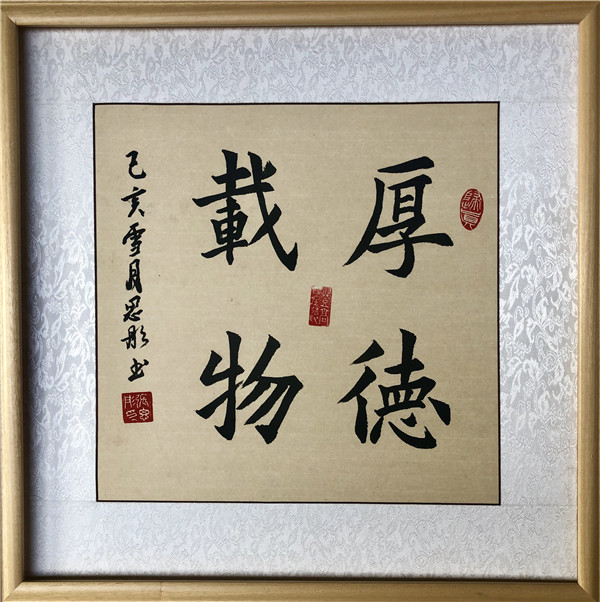 厚德
載物
己亥雪月思彤书